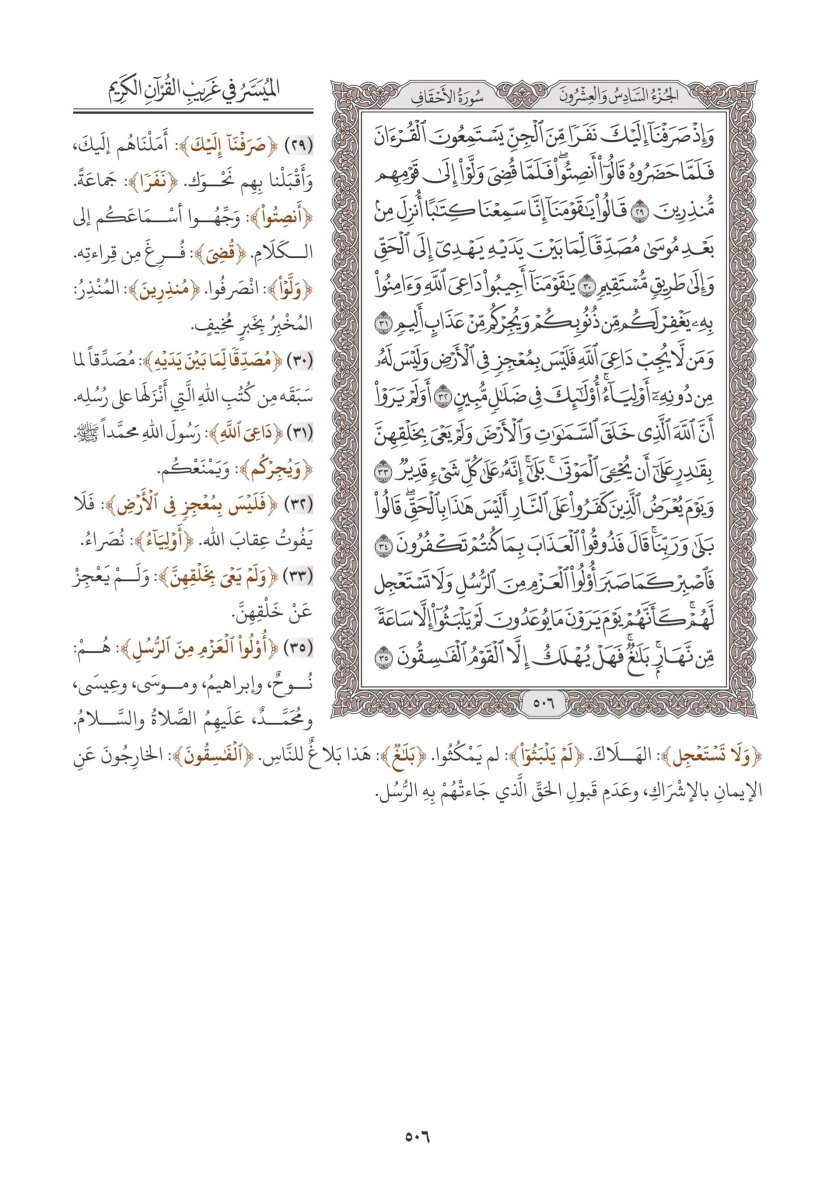 الميسر في غريب القرآن الكريم
الجزء السادس والعشرون
سورة الأحقاف
وَإِذْ صَرَفْنَآ إِلَيْكَ نَفَرًا مِّنَ ٱلْجِنِّ يَسْتَمِعُونَ ٱلْقُرْءَانَ
فَلَمَّا حَضَرُوهُ قَالُوٓاْ أَنصِتُواْۖ فَلَمَّا قُضِىَ وَلَّوْاْ إِلَىٰ قَوْمِهِم
مُّنذِرِينَ ٢٩ قَالُواْ يَٰقَوْمَنَآ إِنَّا سَمِعْنَا كِتَٰبًا أُنزِلَ مِنۢ
بَعْدِ مُوسَىٰ مُصَدِّقًا لِّمَا بَيْنَ يَدَيْهِ يَهْدِىٓ إِلَى ٱلْحَقِّ
وَإِلَىٰ طَرِيقٍ مُّسْتَقِيمٍ ٣٠ يَٰقَوْمَنَآ أَجِيبُواْ دَاعِىَ ٱللَّهِ وَءَامِنُواْ
بِهِۦ يَغْفِرْ لَكُم مِّن ذُنُوبِكُمْ وَيُجِرْكُم مِّنْ عَذَابٍ أَلِيمٍ ٣١
وَمَن لَّا يُجِبْ دَاعِىَ ٱللَّهِ فَلَيْسَ بِمُعْجِزٍ فِى ٱلْأَرْضِ وَلَيْسَ لَهُۥ
مِن دُونِهِۦٓ أَوْلِيَآءُۚ أُوْلَٰٓئِكَ فِى ضَلَٰلٍ مُّبِينٍ ٣٢ أَوَلَمْ يَرَوْاْ
أَنَّ ٱللَّهَ ٱلَّذِى خَلَقَ ٱلسَّمَٰوَٰتِ وَٱلْأَرْضَ وَلَمْ يَعْىَ بِخَلْقِهِنَّ
بِقَٰدِرٍ عَلَىٰٓ أَن يُحْۦِىَ ٱلْمَوْتَىٰۚ بَلَىٰٓۚ إِنَّهُۥ عَلَىٰ كُلِّ شَىْءٍ قَدِيرٌ ٣٣
وَيَوْمَ يُعْرَضُ ٱلَّذِينَ كَفَرُواْ عَلَى ٱلنَّارِ أَلَيْسَ هَٰذَا بِٱلْحَقِّۖ قَالُواْ
بَلَىٰ وَرَبِّنَاۚ قَالَ فَذُوقُواْ ٱلْعَذَابَ بِمَا كُنتُمْ تَكْفُرُونَ ٣٤
فَٱصْبِرْ كَمَا صَبَرَ أُوْلُواْ ٱلْعَزْمِ مِنَ ٱلرُّسُلِ وَلَا تَسْتَعْجِل
لَّهُمْۚ كَأَنَّهُمْ يَوْمَ يَرَوْنَ مَا يُوعَدُونَ لَمْ يَلْبَثُوٓاْ إِلَّا سَاعَةً
مِّن نَّهَارٍۭۚ بَلَٰغٌۚ فَهَلْ يُهْلَكُ إِلَّا ٱلْقَوْمُ ٱلْفَٰسِقُونَ ٣٥
٥٠٦
(٢٩) ﴿صَرَفْنَآ إِلَيْكَ﴾: أَمَلْنَاهُم إليكَ،
وَأَقْبَلْنا بِهِم نَحْوَك. ﴿نَفَرًا﴾: جَماعَةً.
﴿أَنصِتُواْ﴾: وَجِّهُوا أسْمَاعَكُم إلى
الكَلَامِ. ﴿قُضِىَ﴾: فُرِغَ مِن قِراءتِه.
﴿وَلَّوْاْ﴾: انْصَرفُوا. ﴿مُنذِرِينَ﴾: المُنْذِرُ:
المُخْبِرُ بِخَبَرٍ مُخِيفٍ.
(٣٠) ﴿مُصَدِّقًا لِّمَا بَيْنَ يَدَيْهِ﴾: مُصَدِّقاً لما
سَبَقَه مِن كُتُبِ اللهِ الَّتِي أَنْزَلَها على رُسُلِه.
(٣١) ﴿دَاعِىَ ٱللَّهِ﴾: رَسُولَ اللهِ محمَّداً ﷺ.
﴿وَيُجِرْكُم﴾: وَيَمْنَعْكُم.
(٣٢) ﴿فَلَيْسَ بِمُعْجِزٍ فِى ٱلْأَرْضِ﴾: فَلَا
يَفُوتُ عِقابَ الله. ﴿أَوْلِيَآءُ﴾: نُصَراءُ.
(٣٣) ﴿وَلَمْ يَعْىَ بِخَلْقِهِنَّ﴾: وَلَمْ يَعْجِزْ
عَنْ خَلْقِهِنَّ.
(٣٥) ﴿أُوْلُواْ ٱلْعَزْمِ مِنَ ٱلرُّسُلِ﴾: هُمْ:
نُوحٌ، وإبراهيمُ، وموسَى، وعِيسَى،
ومُحَمَّدٌ، عَلَيهِمُ الصَّلاةُ والسَّلامُ.
﴿وَلَا تَسْتَعْجِل﴾: الهَلَاكَ. ﴿لَمْ يَلْبَثُوٓاْ﴾: لم يَمْكُثُوا. ﴿بَلَٰغٌ﴾: هَذا بَلاغٌ للنَّاسِ. ﴿ٱلْفَٰسِقُونَ﴾: الخارِجُونَ عَنِ
الإيمانِ بالإشْرَاكِ، وعَدَمِ قَبولِ الحَقِّ الَّذي جَاءتْهُمْ بِهِ الرُّسُل.
٥٠٦